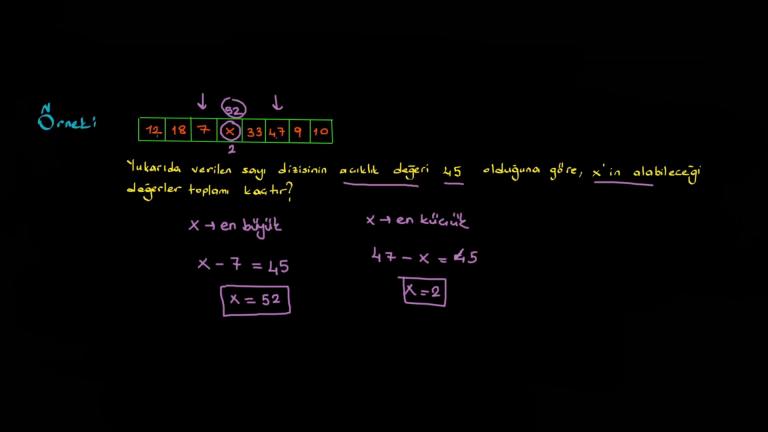 52
Örnek:
12 18 7 x 33 47 9 10
2
Yukarıda verilen sayı dizisinin açıklık değeri 45 olduğuna göre, x'in alabileceği
değerler toplamı kaçtır?
x → en büyük
x → en küçük
x - 7 = 45
47 - x = 45
x = 52
x = 2